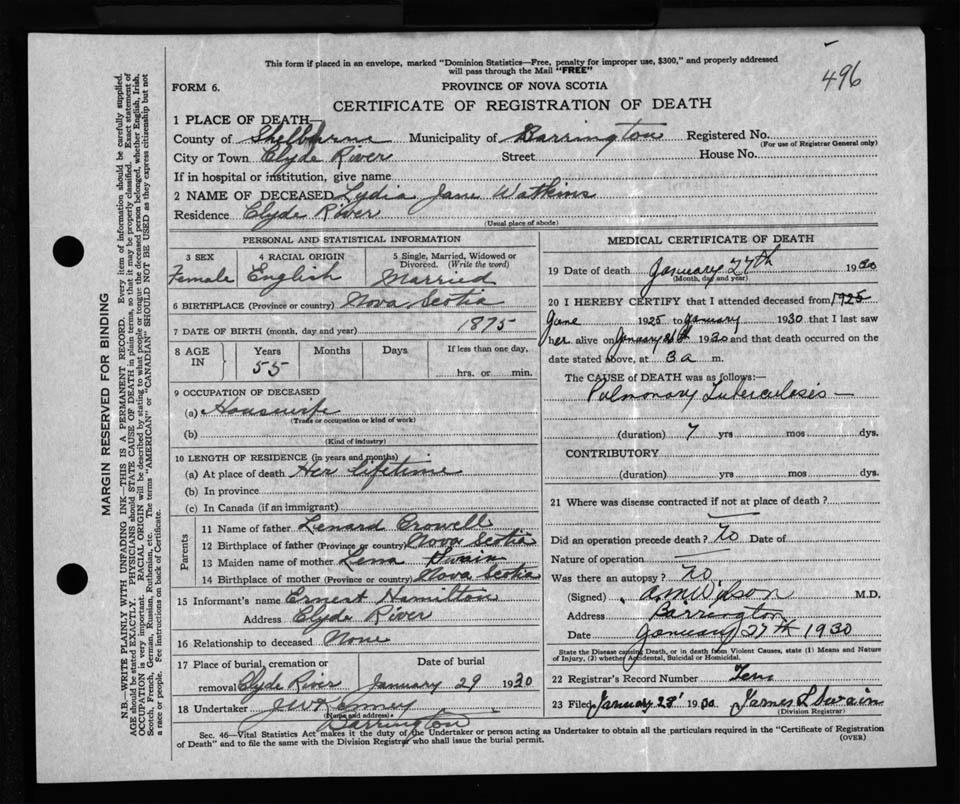 This form if placed in an envelope, marked "Dominion Statistics—Free, penalty for improper use, $300," and properly addressed
will pass through the Mail "FREE"
496
FORM 6.
PROVINCE OF NOVA SCOTIA
CERTIFICATE OF REGISTRATION OF DEATH
1 PLACE OF DEATH—
County of Shelburne Municipality of Barrington Registered No.
(For use of Registrar General only)
City or Town Clyde River Street House No.
If in hospital or institution, give name
2 NAME OF DECEASED Lydia Jane Watkins
Residence Clyde River
(Usual place of abode)
PERSONAL AND STATISTICAL INFORMATION
3 SEX 4 RACIAL ORIGIN 5 Single, Married, Widowed or
Divorced. (Write the word)
Female English Married
6 BIRTHPLACE (Province or country) Nova Scotia
7 DATE OF BIRTH (month, day and year) 1875
8 AGE IN Years Months Days If less than one day,
55 hrs. or min.
9 OCCUPATION OF DECEASED
(a) Housewife
(Trade or occupation or kind of work)
(b)
(Kind of industry)
10 LENGTH OF RESIDENCE (in years and months)
(a) At place of death Her lifetime
(b) In province
(c) In Canada (if an immigrant)
Parents
11 Name of father Lenard Crowell
12 Birthplace of father (Province or country) Nova Scotia
13 Maiden name of mother Lena Swain
14 Birthplace of mother (Province or country) Nova Scotia
15 Informant's name Ernest Hamilton
Address Clyde River
16 Relationship to deceased None
17 Place of burial, cremation or Date of burial
removal Clyde River January 29 1930
18 Undertaker J W Kenney
(Name and address)
Barrington
MEDICAL CERTIFICATE OF DEATH
19 Date of death January 27th 1930
(Month, day and year)
20 I HEREBY CERTIFY that I attended deceased from 1925
June 1925 to January 1930 that I last saw
her alive on January 1930 and that death occurred on
date stated above, at 3 a m.
The CAUSE OF DEATH was as follows:—
Pulmonary Tuberculosis
(duration) 7 yrs mos dys.
CONTRIBUTORY
(duration) yrs mos dys.
21 Where was disease contracted if not at place of death?
Did an operation precede death? No Date of
Nature of operation
Was there an autopsy? No
(Signed) A M Wilson M.D.
Address Barrington
Date January 27th 1930
State the Disease causing Death, or in death from Violent Causes, state (1) Means and Nature
of Injury, (2) whether Accidental, Suicidal or Homicidal.
22 Registrar's Record Number Ten
23 Filed January 1930 James L Swain
(Division Registrar)
Sec. 46—Vital Statistics Act makes it the duty of the Undertaker or person acting as Undertaker to obtain all the particulars required in the "Certificate of Registration
of Death" and to file the same with the Division Registrar who shall issue the burial permit.
(OVER)
MARGIN RESERVED FOR BINDING
N.B.—WRITE PLAINLY WITH UNFADING INK—THIS IS A PERMANENT RECORD. Every item of information should be carefully supplied.
AGE should be stated EXACTLY. PHYSICIANS should STATE CAUSE OF DEATH in plain terms, so that it may be properly classified. Exact statement of
OCCUPATION is very important. RACIAL ORIGIN will be described by stating to what people or tongue the deceased person belonged, whether English, Irish,
Scotch, French, German, Russian, Ruthenian, etc. The terms "AMERICAN" or "CANADIAN" SHOULD NOT BE USED as they express citizenship but not
a race or people. Fee instructions on back of Certificate.